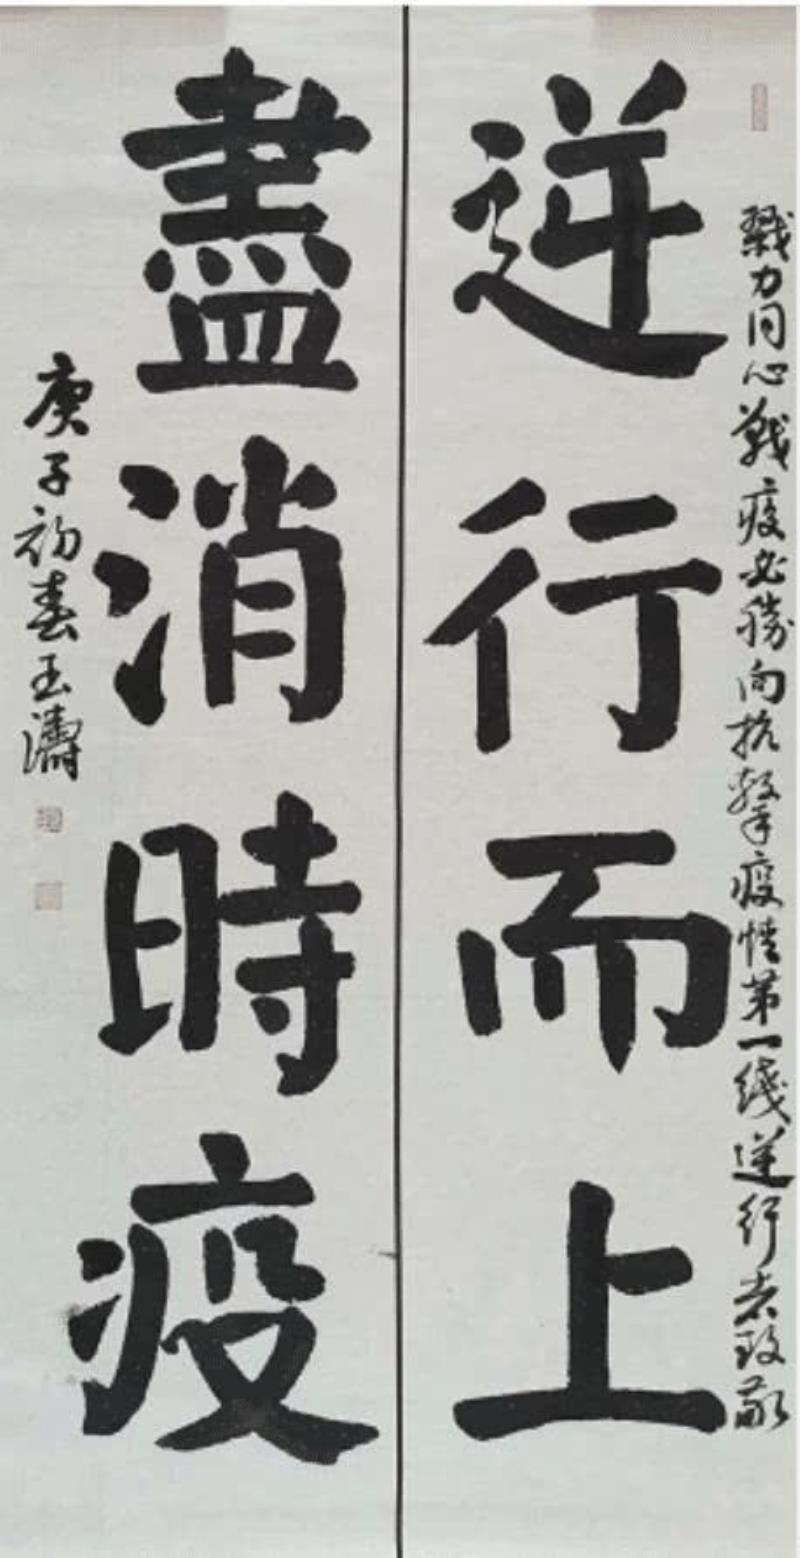 戮力同心戰疫必勝向抗擊疫情第一线逆行者致敬
逆行而上
盡消時疫
庚子初春玉濤